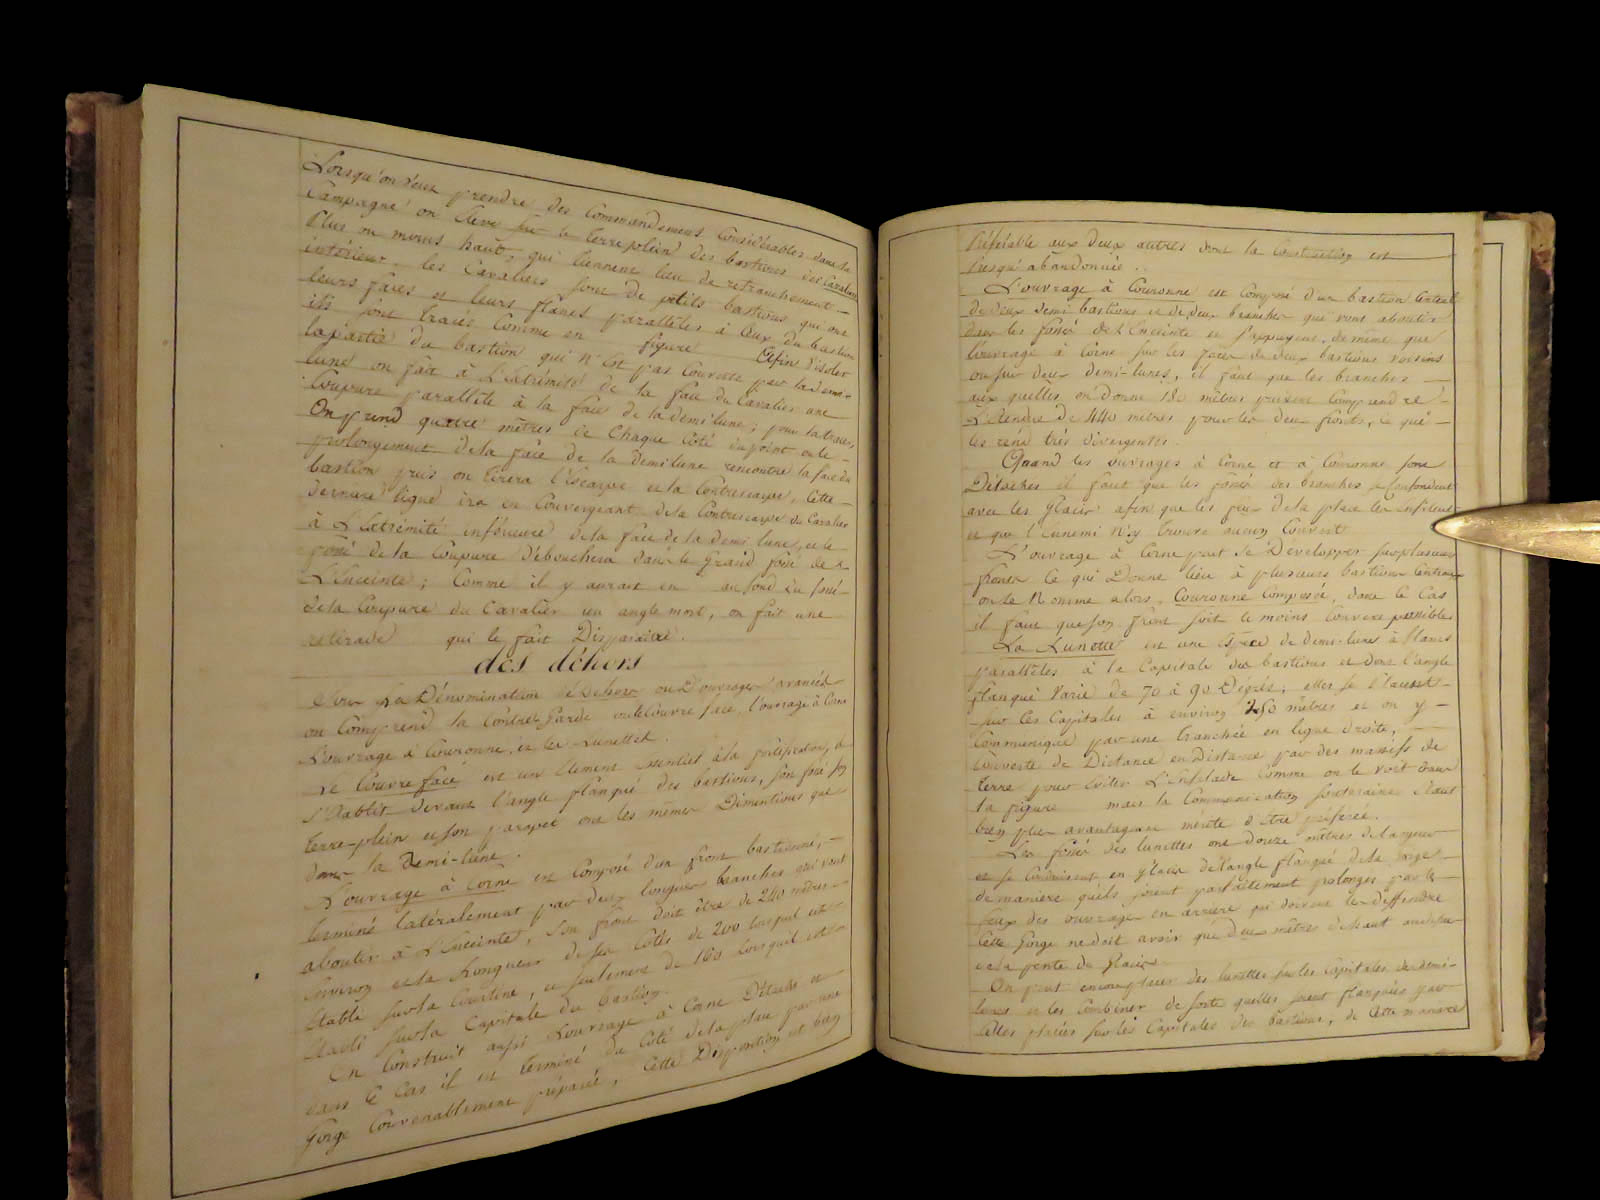 Lorsqu'on veut prendre des Commandements Considérables dans la
Campagne on élève sur le terreplein des bastions des Cavaliers
Plus ou moins hauts, qui tiennent lieu de retranchement
intérieur. les Cavaliers sont de petits bastions qui ont
leurs faces et leurs flancs parallèles à Ceux du bastion
ils sont tracés Comme en figure Afin d'isoler
la partie du bastion qui n'est pas Couverte par la demi-
lune on fait à L'extrémité de la face du Cavalier une
Coupure parallèle à la face de la demi lune; pour la tracer
On prend quatre mètres de Chaque Côté du point ou le
prolongement de la face de la demi lune rencontre la face du
bastion puis on tirera l'Escarpe et la Contrescarpe, Cette
dernière ligne ira en Convergeant de la Contrescarpe du Cavalier
à L'extrémité inférieure de la face de la demi lune, et le
fossé de la Coupure débouchera dans le Grand fossé de
L'Enceinte; Comme il y aurait en au fond du fossé
de la Coupure du Cavalier un angle mort, on fait une
retirade qui le fait Disparaitre.
des déhors
Sous La Dénomination de Dehors ou D'ouvrages avancés
on Comprend la Contre Garde ou le Couvre face, l'ouvrage à Corne
L'ouvrage à Couronne, et les Lunettes.
Le Couvreface est un Element à la fortification, il
s'Etablit devant l'angle flanqué des bastions, son fossé son
terre-plein et son parapet ont les mêmes Dimentions que
dans la Demi-lune.
L'ouvrage à Corne est Composé d'un front bastionné,
terminé latéralement par deux longues branches qui vont
aboutir à L'Enceinte, Son front doit être de 240 mètres
Environ et la Longueur de ses Côtés de 200 lorsqu'il est
Etabli sur la Courtine, et seulement de 160 lorsqu'il est
Etabli sur la Capitale du bastion.
On Construit aussi L'ouvrage à Corne Détaché et
dans Ce Cas il est terminé du Côté de la place par une
Gorge Convenablement préparée, Cette Disposition est bien
Préférable aux deux autres dont la Construction est
presqu'abandonnée.
L'ouvrage à Couronne est Composé d'un bastion Central
de deux demi bastions et de deux branches qui vont aboutir
dans les fossés de L'Enceinte et s'appuyent, de même que
l'ouvrage à Corne sur les faces de deux bastions voisins
ou sur deux demi-lunes, il faut que les branches
aux quelles on donne 180 mètres puissent Comprendre
L'étendue de 440 mètres pour les deux fronts, ce qui
les rend très divergentes.
Quand les ouvrages à Corne et à Couronne sont
Détachés il faut que les fossés des branches se Confondent
avec les Glacis afin que les feux de la place les enfilent
et que l'Ennemi n'y trouve aucun Couvert
L'ouvrage à Corne peut Se Développer sur plusieurs
fronts Ce qui Donne lieu à plusieurs bastions Centraux
on le Nomme alors, Couronne Composée, dans Ce Cas
il faut que son front soit le moins Convexe possible
La Lunette est une Espèce de demi-lune à Flancs
parallèles à la Capitale des bastions et dont l'angle
flanqué Varie de 70 à 90 Dégrés; elles se Placent
sur les Capitales à environ 250 mètres et on y
Communique par une tranchée en ligne droite,
Couverte de Distance en Distance par des massifs de
Terre pour Eviter L'Enfilade Comme on le voit dans
la figure mais la Communication souteraine étant
bien plus avantageuse mérite d'être préférée.
Les fossés des lunettes ont douze mètres de largeur
et se Conduisent en glacis de l'angle flanqué de la Gorge
de manière qu'ils soient parfaitement prolongés par le
feux des ouvrages en arrière qui doivent les Deffendre
Cette Gorge ne doit avoir que deux mètres de haut
et la pente du glacis
On peut encore placer des lunettes sur les Capitales de demi-
lunes et les Combiner de sorte quelles soient flanquées par
Celles placées sur les Capitales des bastions, de Cette manière